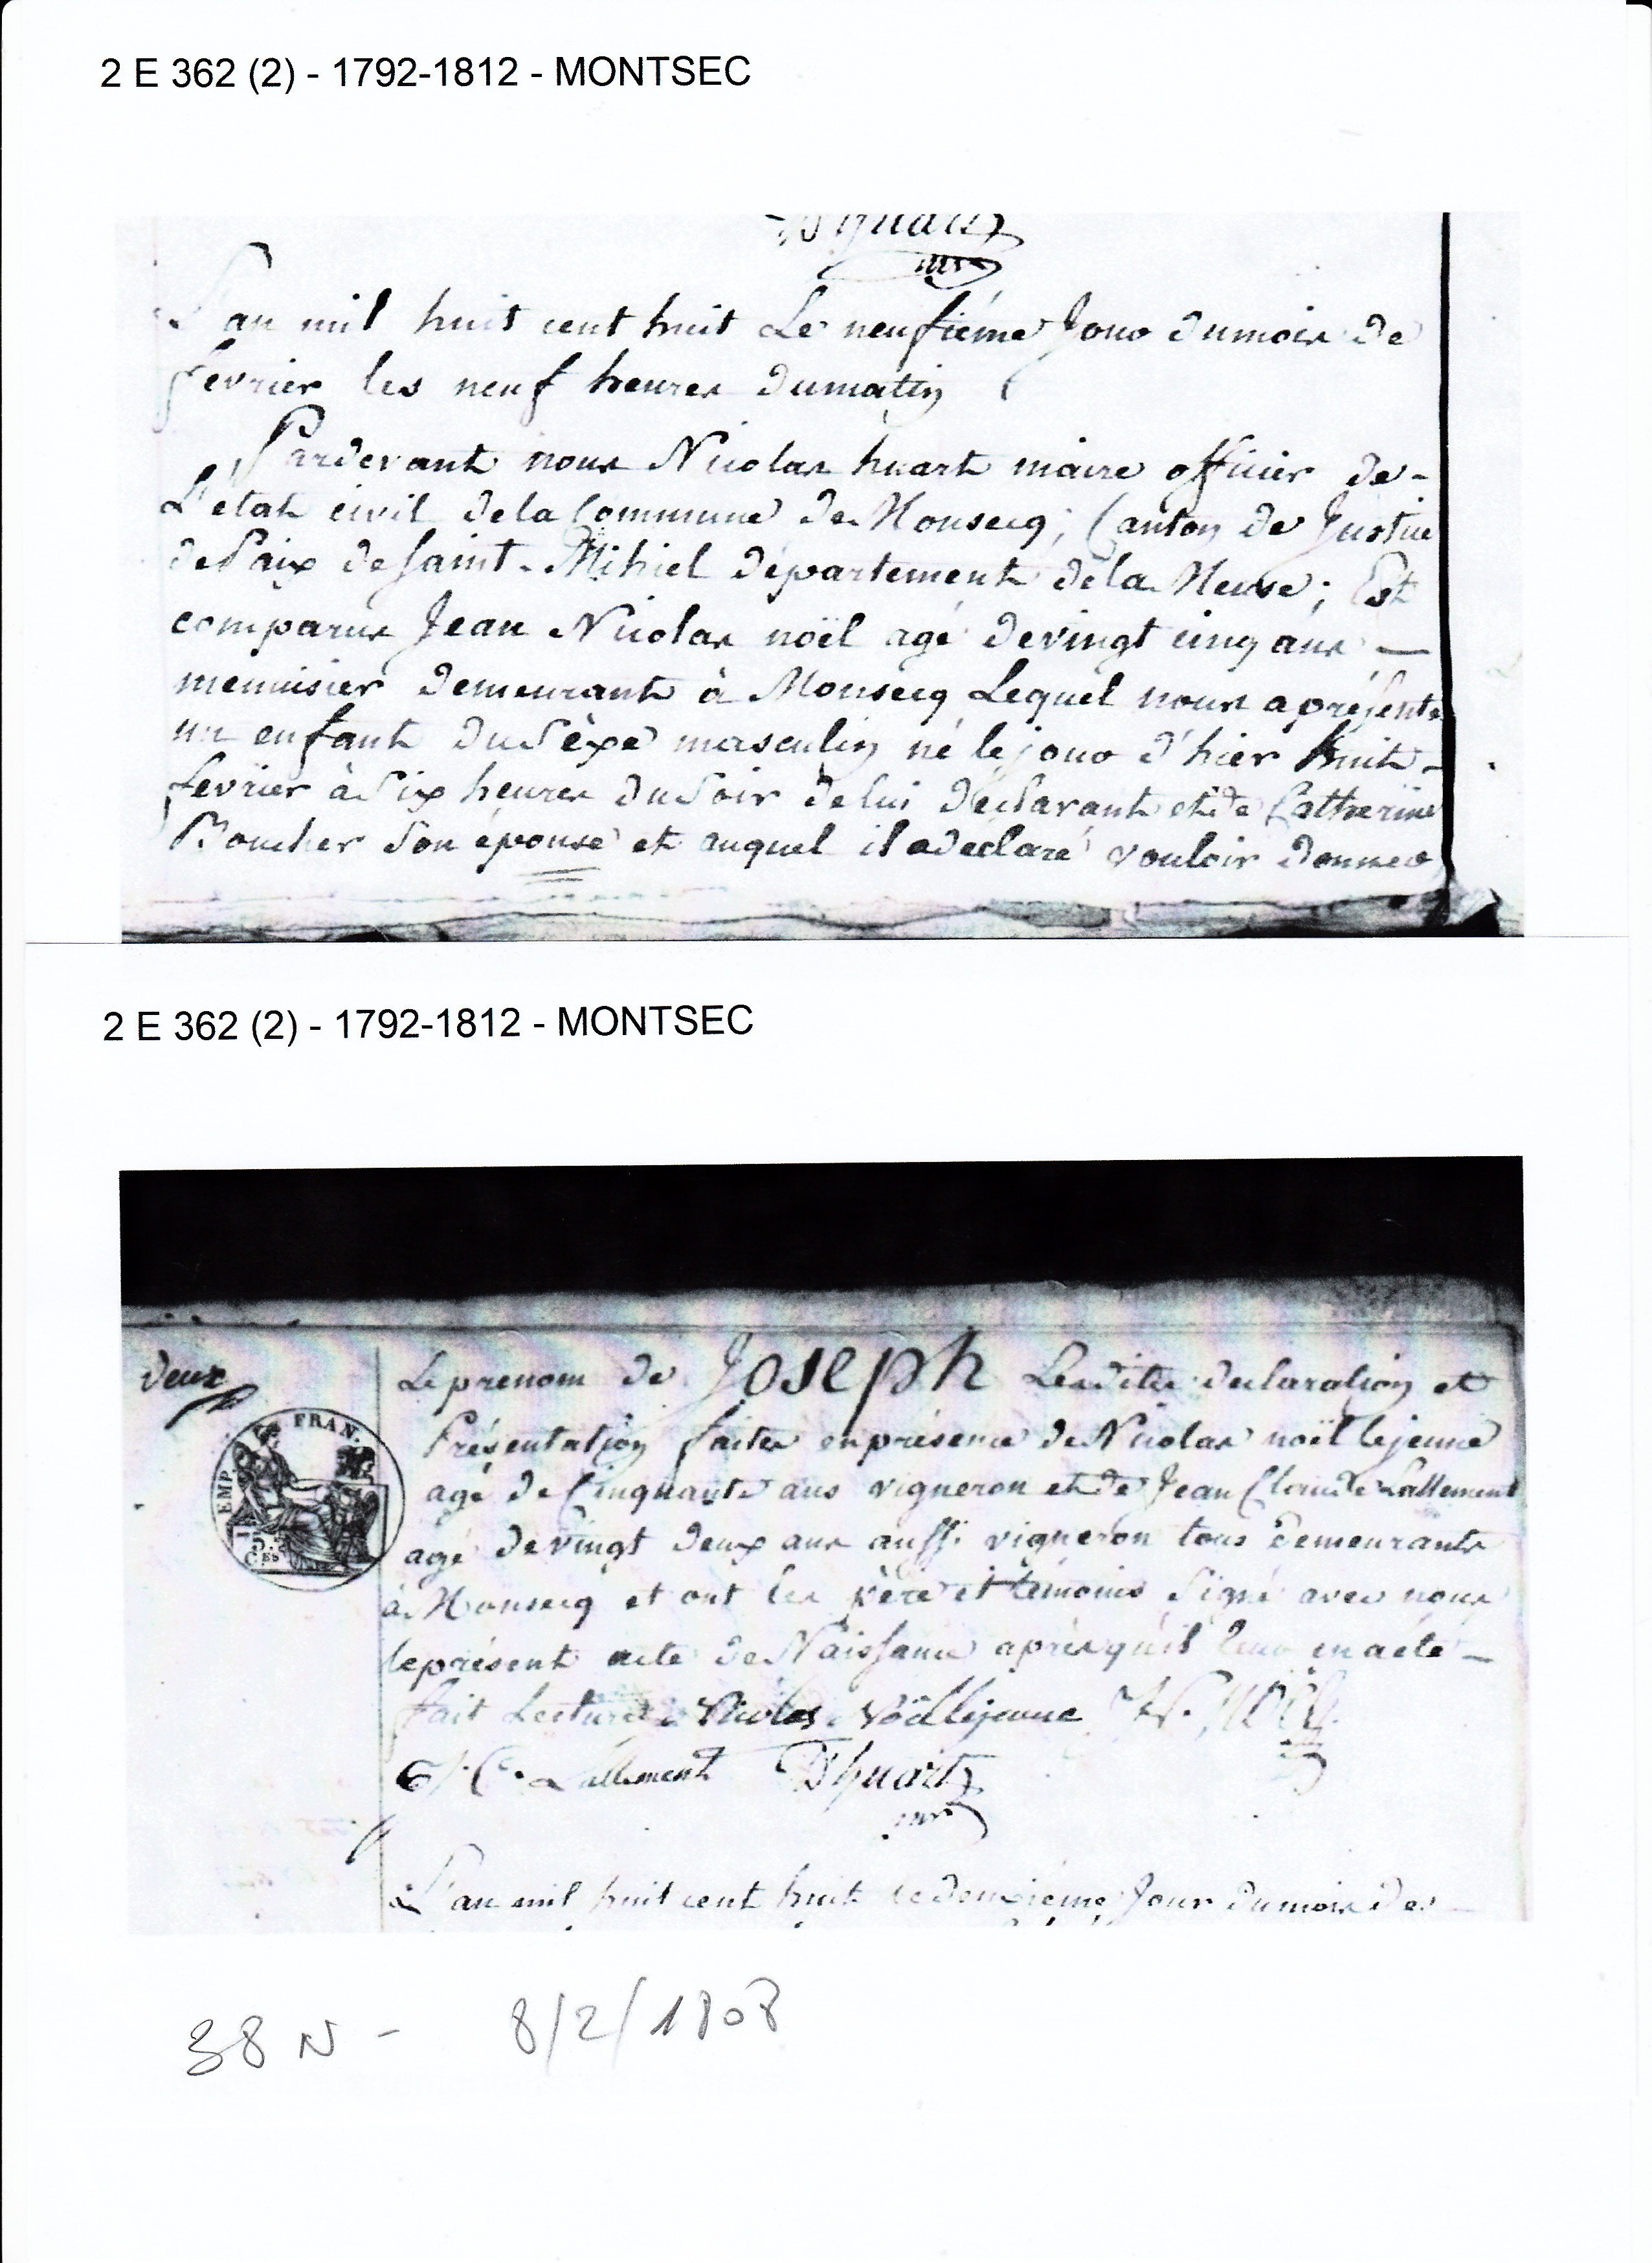 2 E 362 (2) - 1792-1812 - MONTSEC
L'an mil huit cent huit Le neufiéme Jour dumois de
fevrier les neuf heures dumatin
Pardevant nous Nicolas huart maire officier de-
L'etat civil dela Commune de Monsecq; Canton de Justice
de Paix de Saint-Mihiel département dela Meuse; Est
comparus Jean Nicolas noël agé devingt cinq ans —
menuisier demeurant à Monsecq Lequel nous a présenté
un enfant duSèxe masculin né lejour d'hier huit-
fevrier àSix heures duSoir delui déclarant et de Catherine
Boucher Son épouse et auquel il adeclaré vouloir donner
2 E 362 (2) - 1792-1812 - MONTSEC
deux
EMP. FRAN.
Leprenom de Joseph Lesdites declaration et
Présentation faites enprésence deNicolas noël lejeune
agé de Cinquante ans vigneron et de Jean Claude Lallement
agé devingt deux ans aussi vigneron tous demeurants
à Monsecq et ont les père et témoins Signé avec nous
leprésent acte deNaissance aprèsqu'il leur enaété —
fait Lecture Nicolas Noël lejeune
Lallement Nhuart
L'an mil huit cent huit le deuxiéme Jour dumois des
38 N - 8/2/1808